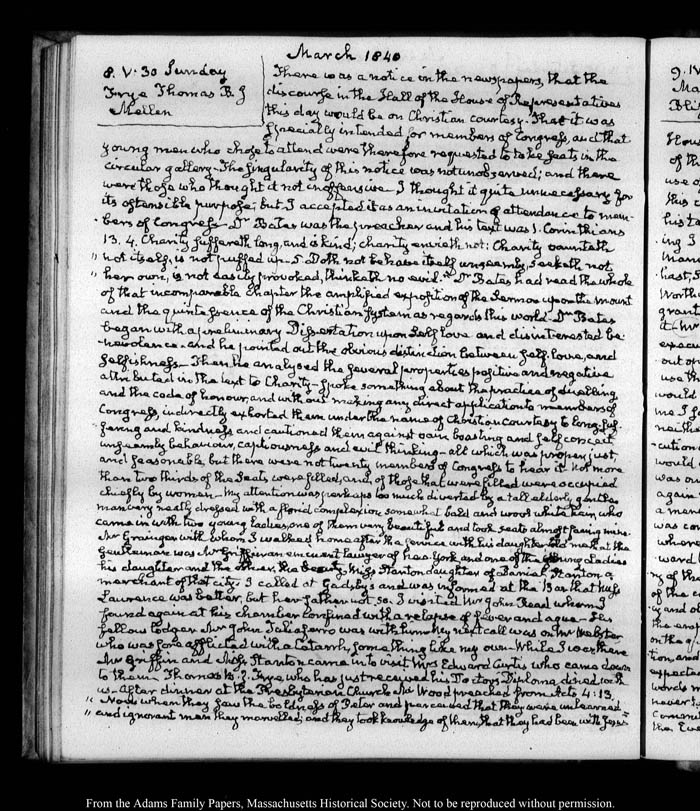 March 1840
8. V:30 Sunday
Frye Thomas B. J
Mellen
There was a notice in the newspapers, that the
discourse in the Hall of the House of Representatives
this day would be on Christian courtesy. That it was
specially intended for members of Congress, and that
young men who chose to attend were therefore requested to take seats in the
circular gallery. The singularity of this notice was not unobserved; and there
were those who thought it not inoffensive. I thought it quite unnecessary for
its ostensible purpose; but I accepted it as an invitation of attendance to mem-
bers of Congress. Dr Bates was the preacher and his text was 1. Corinthians
13. 4. Charity suffereth long, and is kind; charity envieth not: Charity vaunteth
" not itself, is not puffed up. 5 Doth not behave itself unseemly, seeketh not
" her own, is not easily provoked, thinketh no evil." Dr Bates had read the whole
of that incomparable Chapter the amplified exposition of the Sermon upon the mount
and the quintessence of the Christian system as regards this world. Dr Bates
began with a preliminary Dissertation upon Self love and disinterested be-
nevolence. and he pointed out the obvious distinction between self-love, and
selfishness. Then he analysed the several properties positive and negative
attributed in the text to Charity. Spoke something about the practice of duelling
and the code of honour, and without making any direct application to members of
Congress, indirectly exhorted them under the name of Christian Courtesy to long suf-
fering and kindness and cautioned them against vain boasting and self conceit
unseemly behaviour, captiousness and evil thinking - all which was proper, just,
and seasonable, but there were not twenty members of Congress to hear it. Not more
than two thirds of the Seats were filled, and of those that were filled were occupied
chiefly by women. My attention was perhaps too much diverted by a tall elderly gentle-
man very neatly dressed with a florid complexion somewhat bald and wool white hair, who
came in with two young ladies, one of them very beautiful and took seats almost facing mine.
Mr Grainger with whom I walked home after the service with his daughter told me that the
Gentleman was Mr Griffin an eminent lawyer of New-York and one of the young Ladies
his daughter and the other, the beauty, Miss Stanton daughter of Daniel Stanton a
merchant of that city. I called at Gadsby's and was informed at the Bar that Miss
Lawrence was better, but her father not so. I visited Mr John Read whom I
found again at his chamber confined with a relapse of fever and ague. His
fellow lodger Mr John Taliaferro was with him. My next call was on Mr Webster
who was sore afflicted with a Catarrh, something like my own. While I was there
Mr Griffin and Miss Stanton came in to visit Mrs Edward Curtis who came down
to them. Thomas B. J. Frye who has just received his Doctors Diploma dined with
us. After dinner at the Presbyterian Church Mr Wood preached from Acts 4:13.
" Now when they saw the boldness of Peter and perceived that they were unlearned
" and ignorant men they marvelled; and they took knowledge of them, that they had been with Jesus"
From the Adams Family Papers, Massachusetts Historical Society. Not to be reproduced without permission.